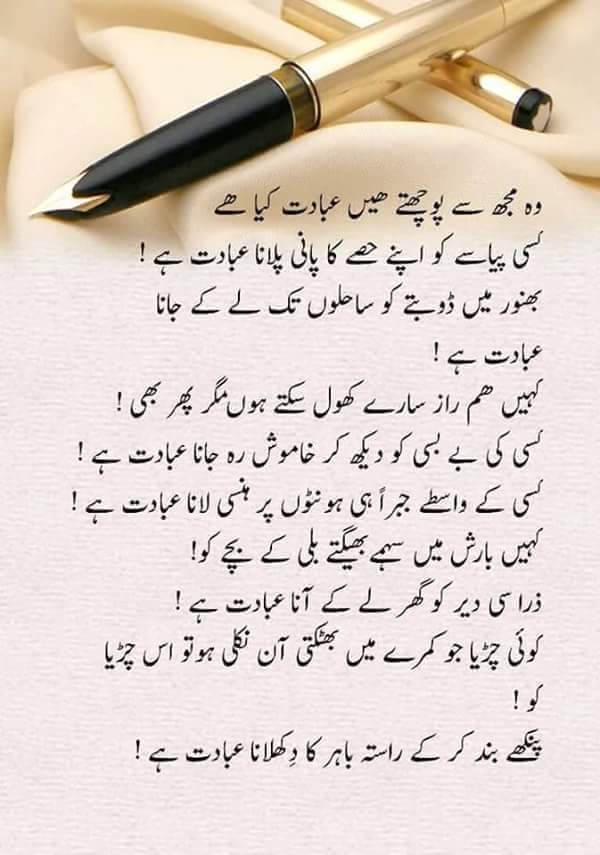 وہ مجھ سے پوچھتے ھیں عبادت کیا ھے
کسی پیاسے کو اپنے حصے کا پانی پلانا عبادت ہے !
بھنور میں ڈوبتے کو ساحلوں تک لے کے جانا
عبادت ہے !
کہیں ھم راز سارے کھول سکتے ہوں مگر پھر بھی !
کسی کی بے بسی کو دیکھ کر خاموش رہ جانا عبادت ہے !
کسی کے واسطے جبراً ہی ہونٹوں پر ہنسی لانا عبادت ہے !
کہیں بارش میں سہمے بھیگتے بلی کے بچے کو!
ذرا سی دیر کو گھر لے کے آنا عبادت ہے !
کوئی چڑیا جو کمرے میں بھٹکتی آن نکلی ہو تو اس چڑیا
کو !
پنکھے بند کر کے راستہ باہر کا دِکھلانا عبادت ہے !